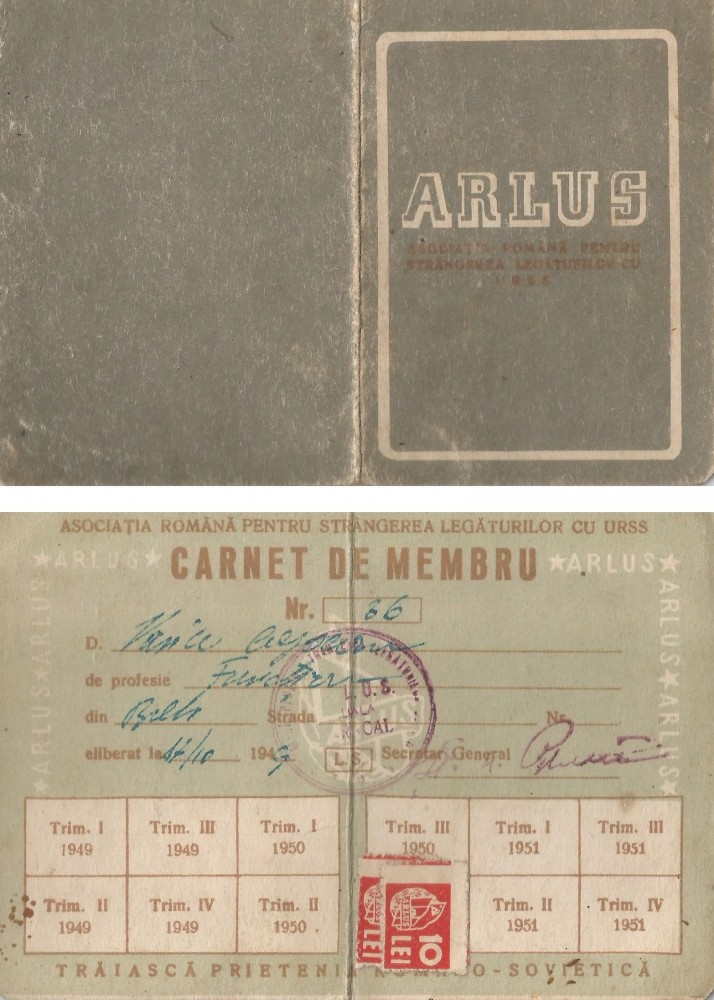 ARLUS
ASOCIAȚIA ROMÂNĂ PENTRU
STRÂNGEREA LEGĂTURILOR CU
URSS
ASOCIAȚIA ROMÂNĂ PENTRU STRÂNGEREA LEGĂTURILOR CU URSS
★ARLUS★ CARNET DE MEMBRU ★ARLUS★
Nr. 66
D. Vasile
de profesie
din Strada Nr.
eliberat la 17/10 1949 L.S. Secretar General
Trim. I 1949
Trim. III 1949
Trim. I 1950
Trim. III 1950
Trim. I 1951
Trim. III 1951
Trim. II 1949
Trim. IV 1949
Trim. II 1950
LEI
10 LEI
Trim. II 1951
Trim. IV 1951
TRĂIASCĂ PRIETENIA ROMÂNO-SOVIETICĂ
ARLUS ARLUS
ARLUS ARLUS